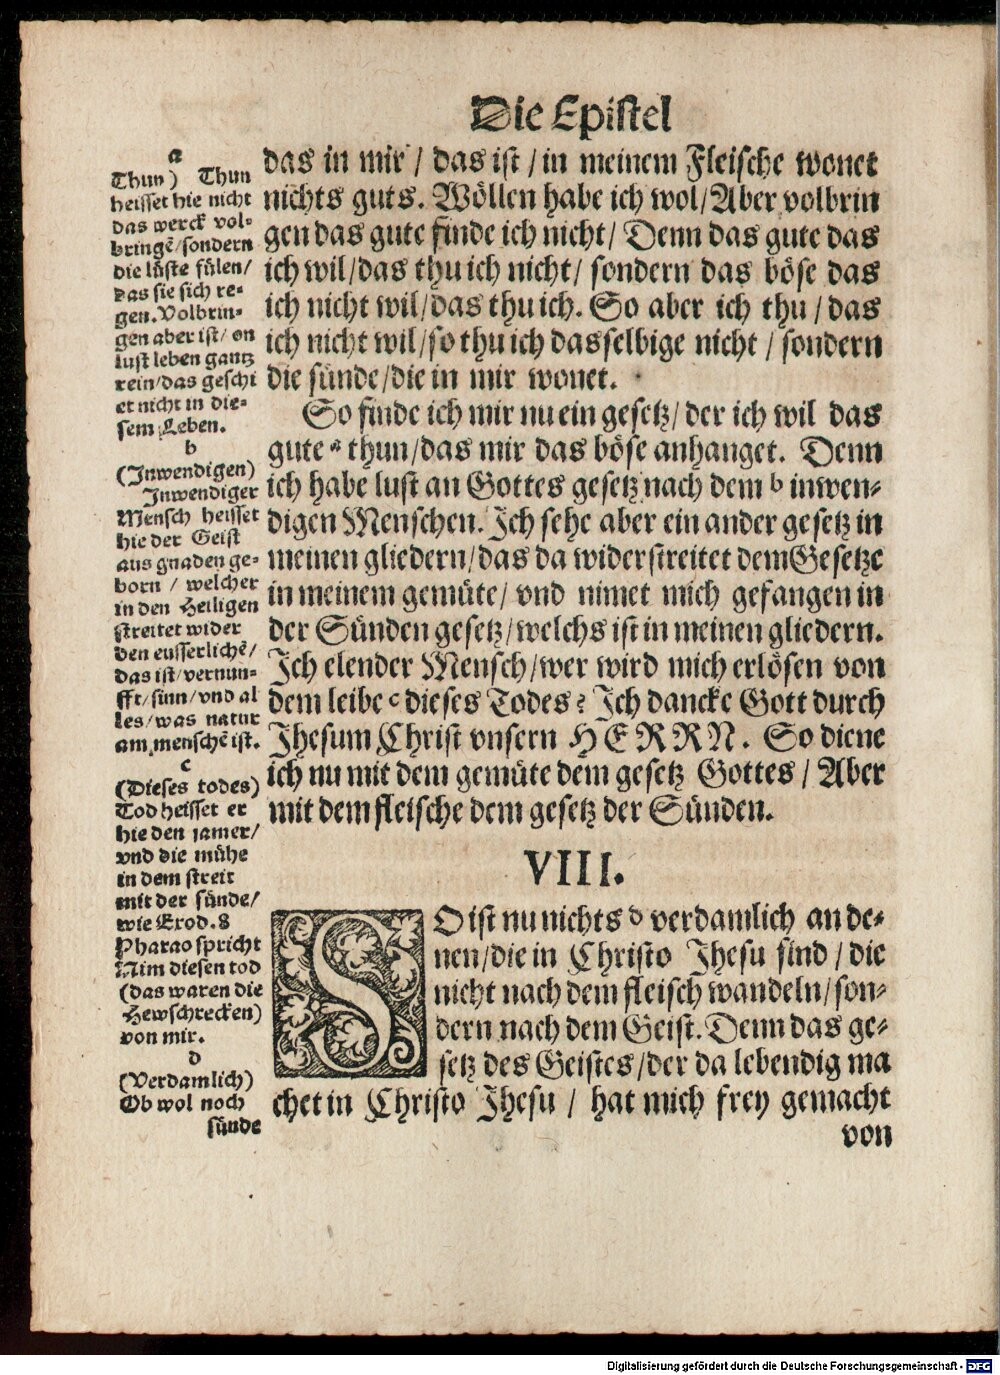 Die Epistel
das in mir / das ist / in meinem Fleische wonet
nichts guts. Wöllen habe ich wol / Aber volbrin
gen das gute finde ich nicht / Denn das gute das
ich wil / das thu ich nicht / sondern das böse das
ich nicht wil / das thu ich. So aber ich thu / das
ich nicht wil / so thu ich dasselbige nicht / sondern
die sünde / die in mir wonet.
So finde ich mir nu ein gesetz / der ich wil das
gute a thun / das mir das böse anhanget. Denn
ich habe lust an Gottes gesetz nach dem b inwen-
digen Menschen. Ich sehe aber ein ander gesetz in
meinen gliedern / das da widerstreitet dem Gesetze
in meinem gemüte / vnd nimet mich gefangen in
der Sünden gesetz / welchs ist in meinen gliedern.
Ich elender Mensch / wer wird mich erlösen von
dem leibe c dieses Todes? Ich dancke Gott durch
Jhesum Christ vnsern HERRN. So diene
ich nu mit dem gemüte dem gesetz Gottes / Aber
mit dem fleische dem gesetz der Sünden.
VIII.
SO ist nu nichts d verdamlich an de-
nen / die in Christo Jhesu sind / die
nicht nach dem fleisch wandeln / son-
dern nach dem Geist. Denn das ge-
setz des Geistes / der da lebendig ma
chet in Christo Jhesu / hat mich frey gemacht
von
a
Thun) Thun
heisset hie nicht
das werck vol-
bringē / sondern
die lüste fülen /
das sie sich re-
gen. Volbrin-
gen aber ist / on
lust leben gantz
rein / das geschi
et nicht in die-
sem Leben.
b
(Inwendigen)
Inwendiger
Mensch heisset
hie der Geist
aus gnaden ge-
born / welcher
in den Heiligen
streitet wider
den eusserlichē /
das ist / vernun-
fft / sinn / vnd al
les / was natur
am menschē ist.
c
(Dieses todes)
Tod heisset er
hie den jamer /
vnd die mühe
in dem streit
mit der sünde /
wie Exod. 8
Pharao spricht
Nim diesen tod
(das waren die
Hewschrecken)
von mir.
d
(Verdamlich)
Ob wol noch
sünde
Digitalisierung gefördert durch die Deutsche Forschungsgemeinschaft - DFG